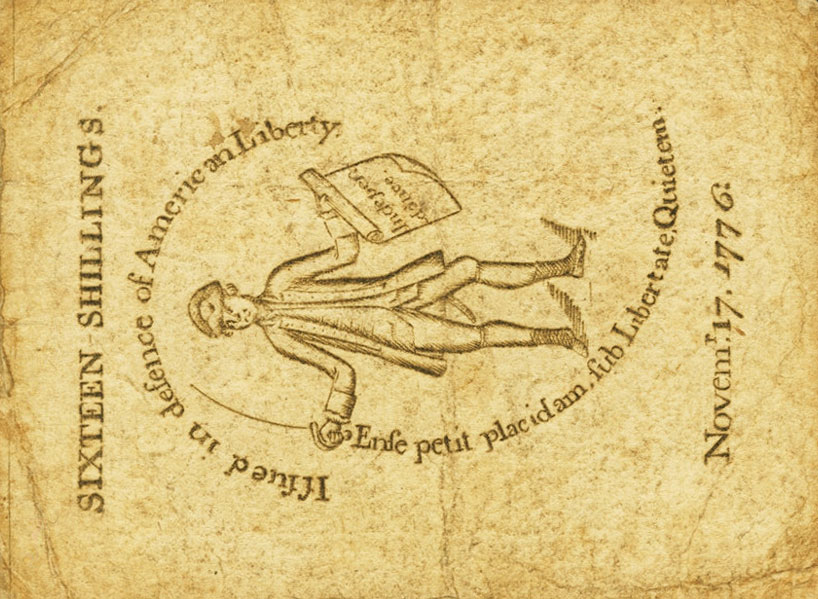 SIXTEEN SHILLINGS.
Iſſued in defence of American Liberty.
Indepen
dance.
Enſe petit placidam, ſub Libertate, Quietem.
Novemʳ. 17. 1776: